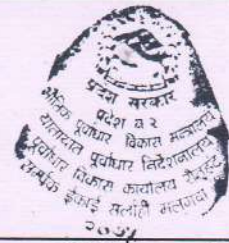 प्रदेश सरकार
प्रदेश नं २
भौतिक पूर्वाधार विकास मन्त्रालय
यातायात पूर्वाधार निर्देशनालय
पूर्वाधार विकास कार्यालय रौतहट
सम्पर्क ईकाई सर्लाही मलंगवा
२०७५